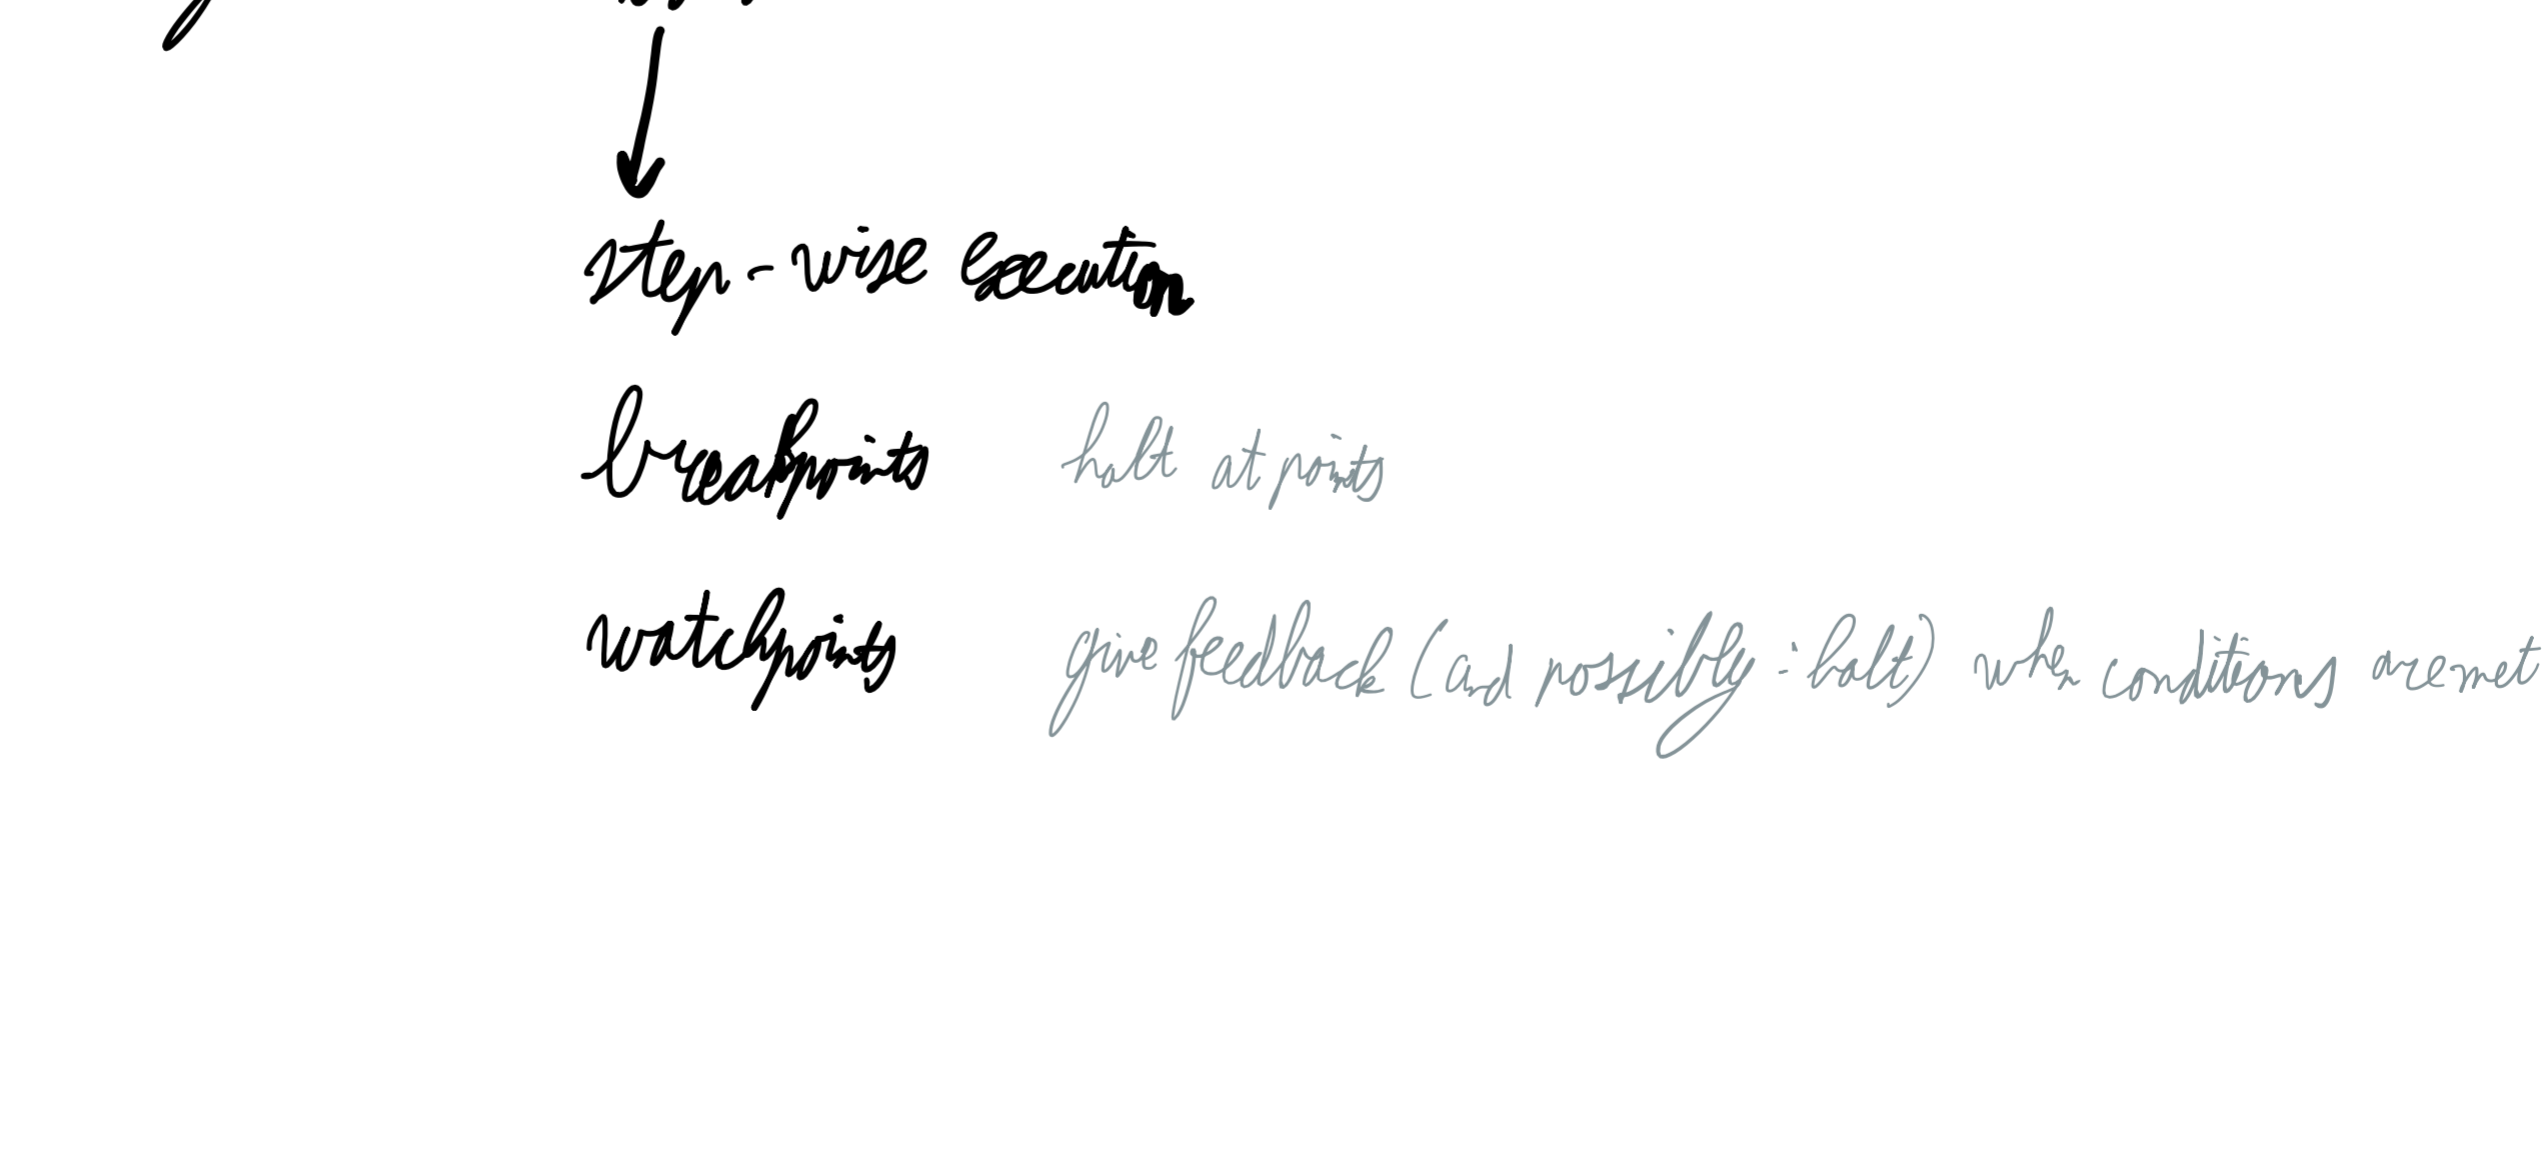 step-wise execution
breakpoints halt at points
watchpoints give feedback (and possibly: halt) when conditions are met